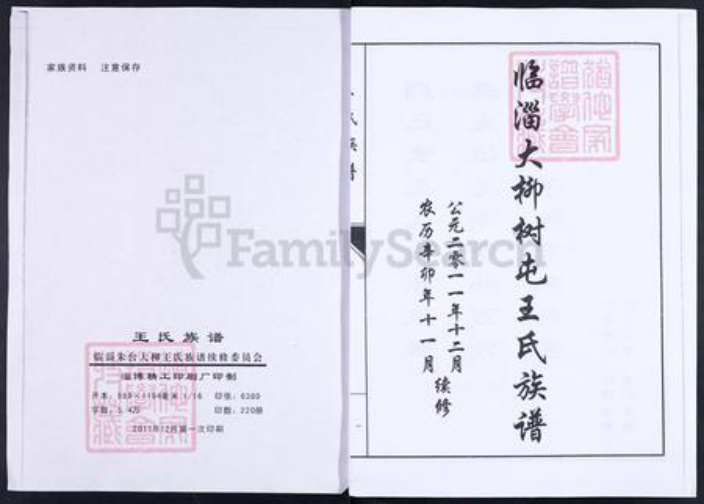 家族资料 注意保存
王氏族谱
临淄朱台大柳王氏族谱续修委员会
淄博精工印刷厂印制
开本：889×1194毫米 1/16 印张：6380
字数：5.4万 印数：220册
2011年12月第一次印刷
王氏族谱
临淄大柳树屯王氏族谱
公元二零一一年十二月
农历辛卯年十一月
续修
FamilySearch